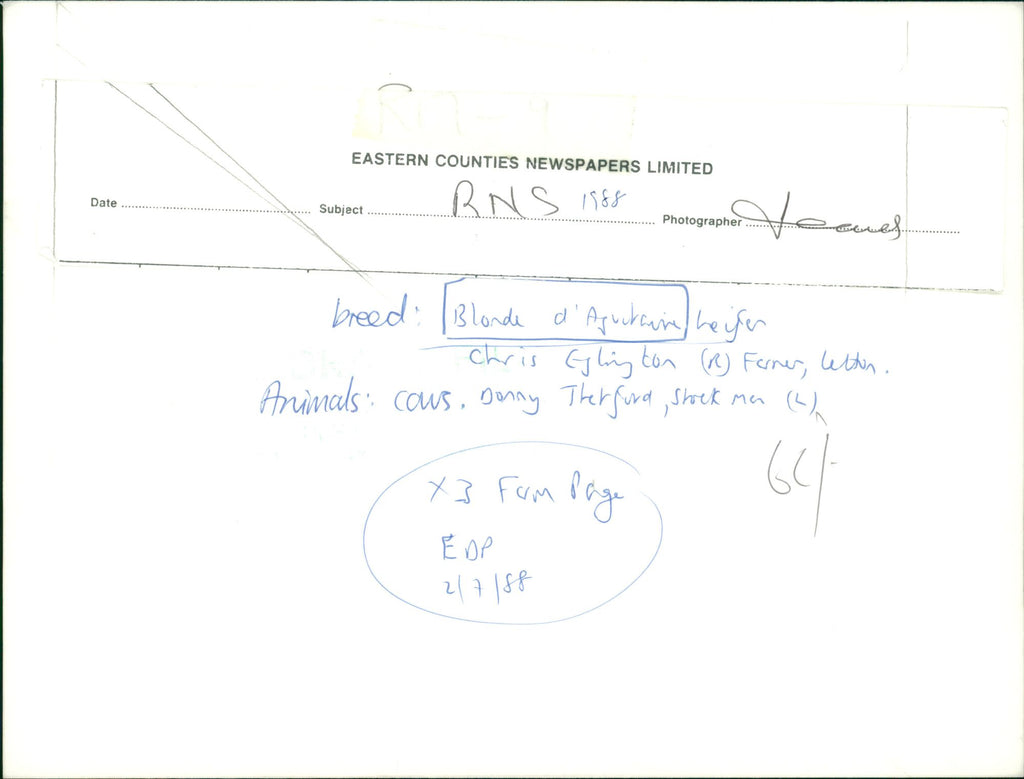 EASTERN COUNTIES NEWSPAPERS LIMITED
Date Subject RNS 1988 Photographer
breed: Blonde d'Aquitaine heifer
Chris Eglington (R) Farmer, Letton.
Animals: cows. Danny Thetford, Stockman (L)
X3 Farm Page
EDP
2/7/88